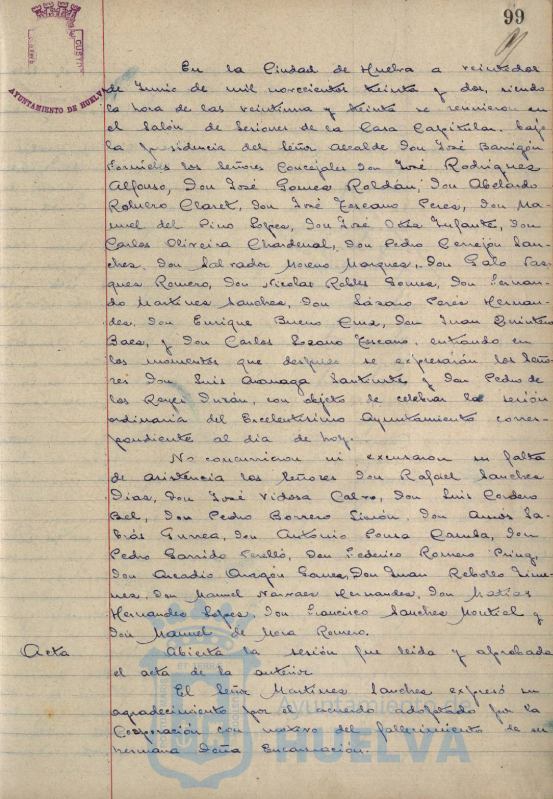 99
AYUNTAMIENTO DE HUELVA
En la Ciudad de Huelva a veintidos
de Junio de mil novecientos treinta y dos, siendo
la hora de las veintiuna y treinta se reunieron en
el Salón de Sesiones de la Casa Capitular, bajo
la presidencia del Señor Alcalde Don José Barrigón
Fornieles los Señores Concejales Don José Rodriguez
Alfonso, Don José Gomez Roldán, Don Abelardo
Romero Claret, Don José Toscano Perez, Don Ma-
nuel del Pino Lopez, Don José Ossa Infante, Don
Carlos Oliveira Chardenal, Don Pedro Cerrejón San-
chez, Don Salvador Moreno Marquez, Don Galo Vaz-
quez Romero, Don Nicolas Robles Gomez, Don Fernan-
do Martinez Sanchez, Don Lázaro Perez Hernan-
dez, Don Enrique Bueno Cruz, Don Juan Quintero
Baez, y Don Carlos Lozano Toscano, entrando en
los momentos que después se expresarán los Seño-
res Don Luis y Don Pedro de
los Reyes Durán, con objeto de celebrar la sesión
ordinaria del Excelentísimo Ayuntamiento corres-
pondiente al dia de hoy.
No concurrieron ni excusaron su falta
de asistencia los Señores Don Rafael Sanchez
Diaz, Don José Vidosa Calvo, Don Luis Cordero
Bel, Don Pedro Borrero Limón, Don Amós Sa-
brás Gurrea, Don António Pousa Camba, Don
Pedro Garrido Perelló, Don Federico Romero
Don Arcadio Aragón Gomez, Don Juan Rebollo Jime-
nez, Don Manuel Narvaez Hernandez, Don Matías
Hernandez Lopez, Don Francisco Sanchez Montiel y
Don Manuel de Mora Romero.
Acta Abierta la sesión fue leida y aprobada
el acta de la anterior.
El Señor Martinez Sanchez expresó su
agradecimiento por el acuerdo adoptado por la
Corporación con motivo del fallecimiento de su
hermana Doña Encarnación.
Ayuntamiento de
HUELVA